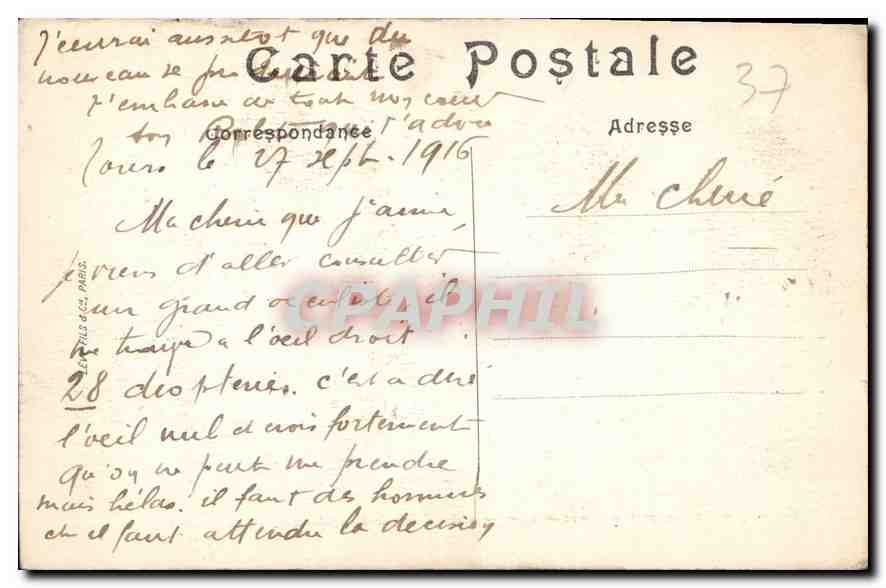 J'écrirai aussitôt que du
nouveau se
t'embrasse de tout mon coeur
ton qui t'adore
Carte Postale
Correspondance
Adresse
37
Tours le 27 sept. 1916
Ma chérie
Ma cherie que j'aime
je viens d'aller consulter
un grand oculiste, il
me trouve a l'oeil droit
28 dioptries. c'est a dire
l'oeil nul
qu'on ne peut me prendre
mais hélas. il faut des hommes
et il faut attendre la decision
LEVY FILS & Cie, PARIS.
CPAPHIL